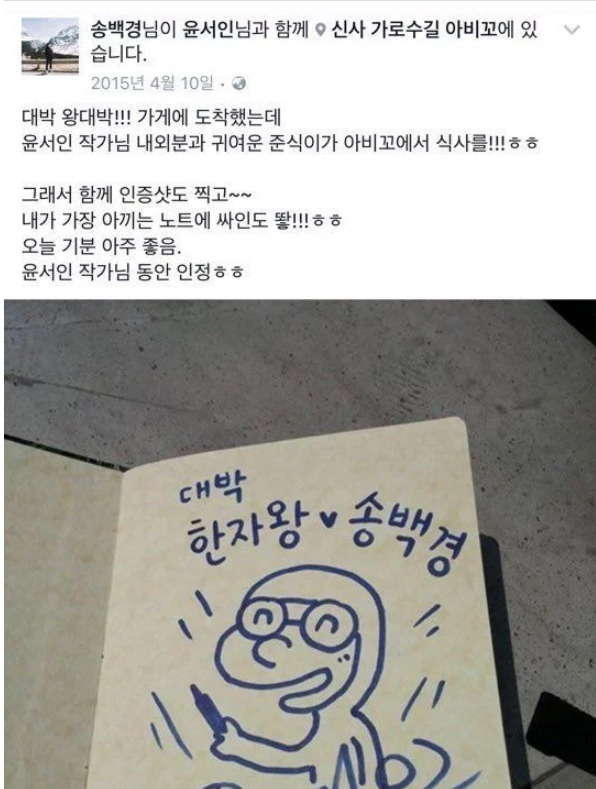 송백경님이 윤서인님과 함께 신사 가로수길 아비꼬에 있
습니다.
2015년 4월 10일 ·
대박 왕대박!!! 가게에 도착했는데
윤서인 작가님 내외분과 귀여운 준식이가 아비꼬에서 식사를!!!ㅎㅎ
그래서 함께 인증샷도 찍고~~
내가 가장 아끼는 노트에 싸인도 뙇!!!ㅎㅎ
오늘 기분 아주 좋음.
윤서인 작가님 동안 인정ㅎㅎ
대박
한자왕 ♥ 송백경